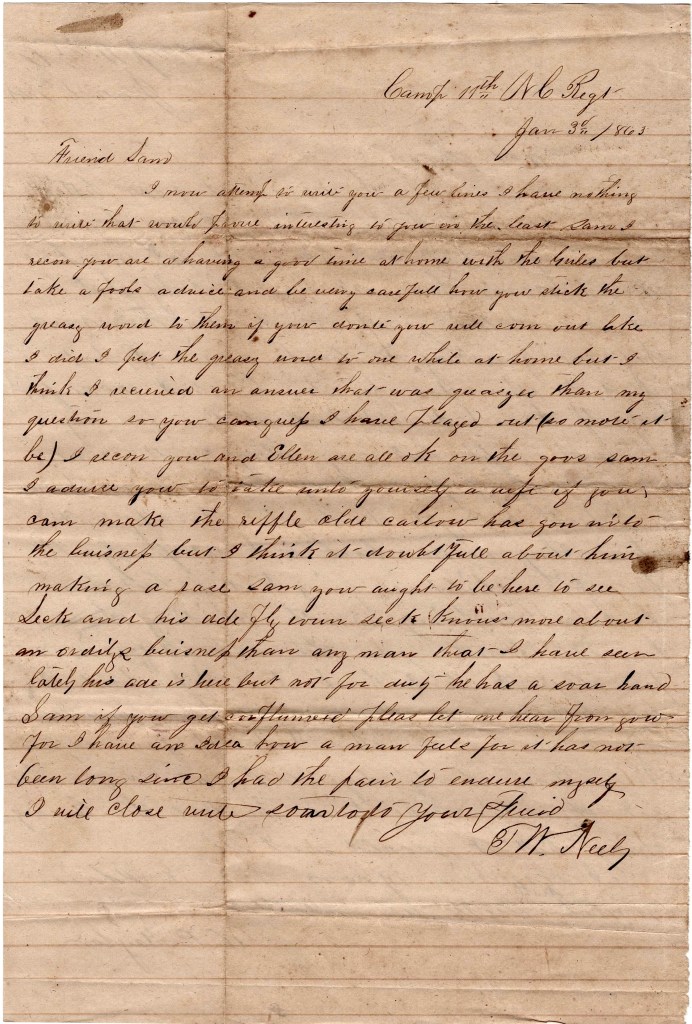 Camp 11th N C Regt
Jan 3d /1863
Friend Sam
I now attemp to write you a few lines I have nothing
to write that would prove interesting to you in the least Sam I
recon you are a having a good time at home with the Guiles but
take a fools advice and be very carefull how you stick the
greasy word to them if you dont you will com out like
I did I put the greasy word to one while at home but I
think I recieved an answer that was greasyer than my
question so you can guess I have plaged out (so more it
be) I recon you and Ellen are all ok on the goos sam
I advise you to take unto yourself a wife if you
can make the riffle olde has gon into
the buisness but I think it doubtfull about him
making a rase sam you aught to be here to see
Seck and his ade fly roun seck knows more about
an buisness than any man that I have seen
lately his ade is here but not for duty he has a soar hand
Sam if you get pleas let me hear from you
for I have an Idea how a man feels for it has not
been long since I had the pain to endure myself
I will close write soar to your Friend
T W. Neely